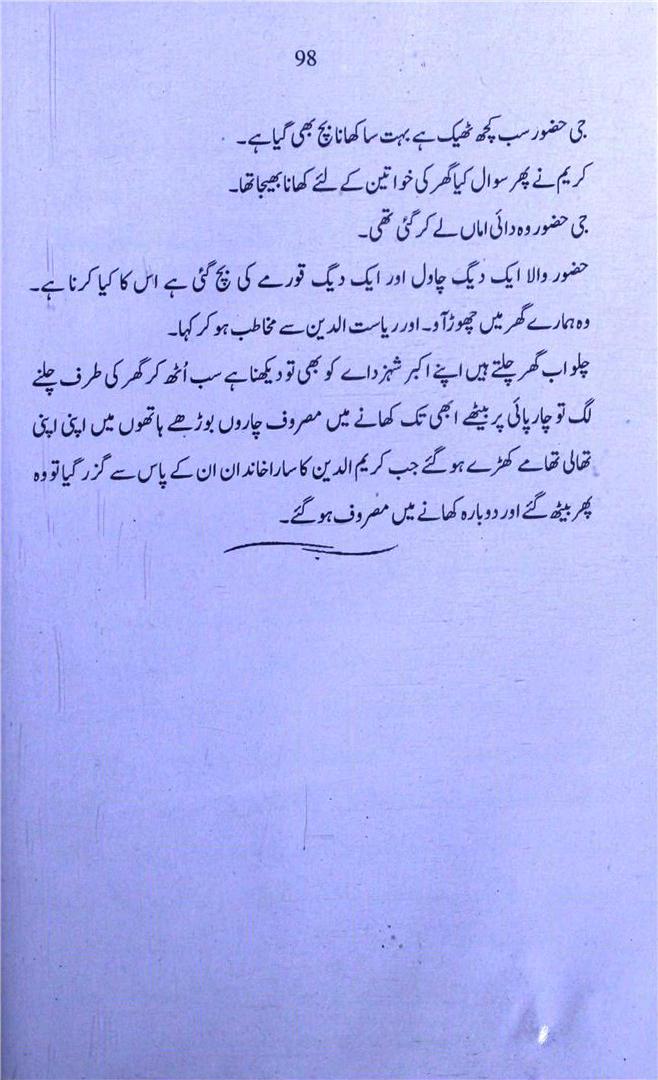 98
جی حضور سب کچھ ٹھیک ہے بہت سا کھانا بچ بھی گیا ہے۔
کریم نے پھر سوال کیا گھر کی خواتین کے لئے کھانا بھیجا تھا۔
جی حضور وہ دائی اماں لے کر گئی تھی۔
حضور والا ایک دیگ چاول اور ایک دیگ قورمے کی بچ گئی ہے اس کا کیا کرنا ہے۔
وہ ہمارے گھر میں چھوڑ آو۔ اور ریاست الدین سے مخاطب ہو کر کہا۔
چلو اب گھر چلتے ہیں اپنے اکبر شہزداے کو بھی تو دیکھنا ہے سب اُٹھ کر گھر کی طرف چلنے
لگ تو چارپائی پر بیٹھے ابھی تک کھانے میں مصروف چاروں بوڑھے ہاتھوں میں اپنی اپنی
تھالی تھامے کھڑے ہو گئے جب کریم الدین کا سارا خاندان ان کے پاس سے گزر گیا تو وہ
پھر بیٹھ گئے اور دوبارہ کھانے میں مصروف ہو گئے۔